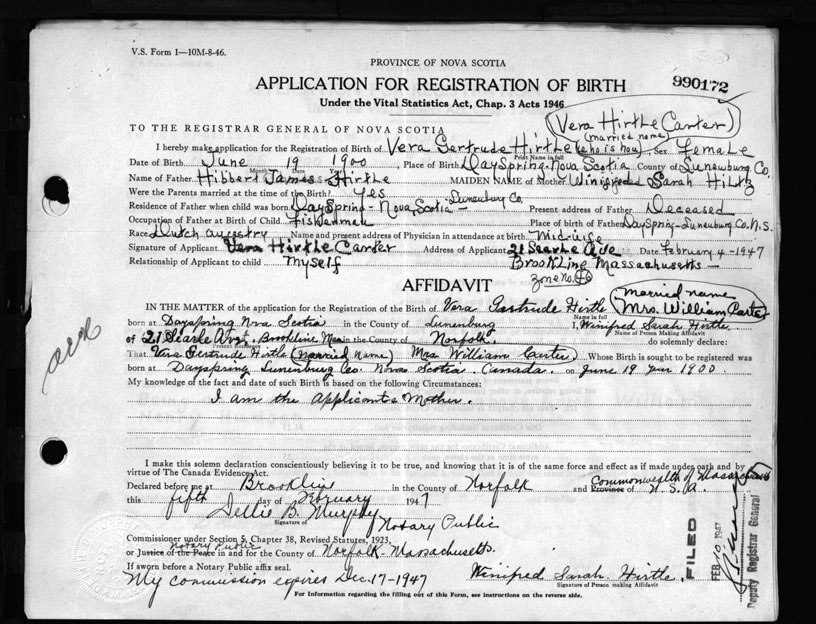 V.S. Form 1—10M-8-46.
PROVINCE OF NOVA SCOTIA
APPLICATION FOR REGISTRATION OF BIRTH
990172
Under the Vital Statistics Act, Chap. 3 Acts 1946
Vera Hirtle Carter)
(married name)
TO THE REGISTRAR GENERAL OF NOVA SCOTIA
I hereby make application for the Registration of Birth of Vera Gertrude Hirtle (who is now) Sex Female
Print Name in full
Date of Birth June 19 1900, Place of Birth DaySpring Nova Scotia County of Lunenburg Co.
Month Day Year
Name of Father Hibbert James Hirtle MAIDEN NAME of Mother Winifred Sarah Hiltz
Were the Parents married at the time of the Birth? Yes
Residence of Father when child was born DaySpring - Nova Scotia - Lunenburg Co. Present address of Father Deceased
Occupation of Father at Birth of Child Fisherman Place of Birth of Father DaySpring - Lunenburg Co. N.S.
Race Dutch ancestry Name and present address of Physician in attendance at birth Mid-wife
Signature of Applicant Vera Hirtle Carter Address of Applicant 21 Searle Ave Date February 4 - 1947
Relationship of Applicant to child myself Brookline Massachusetts -
Zone No.
AFFIDAVIT
married name
Mrs. William Carter
IN THE MATTER of the application for the Registration of Birth of Vera Gertrude Hirtle
Name in full
born at Dayspring Nova Scotia in the County of Lunenburg I, Winifred Sarah Hirtle
Name of Person Making Affidavit
of 21 Searle Ave., Brookline Mass in the County of Norfolk. do solemnly declare:
Present Residence
That Vera Gertrude Hirtle (married name) Mrs William Carter. Whose Birth is sought to be registered was
born at Dayspring Lunenburg Co. Nova Scotia. Canada. on June 19 year 1900.
My knowledge of the fact and date of such Birth is based on the following Circumstances:
I am the Applicants Mother.
I make this solemn declaration conscientiously believing it to be true, and knowing that it is of the same force and effect as if made under oath and by
virtue of The Canada Evidence Act.
Commonwealth of Massachusetts
Declared before me at Brookline in the County of Norfolk and Province of U.S.A.
this fifth day of February 1947
Nellie B. Murphy
Signature of
Notary Public
Commissioner under Section 5, Chapter 38, Revised Statutes, 1923,
Notary Public
or Justice of the Peace in and for the County of Norfolk - Massachusetts.
If sworn before a Notary Public affix seal.
My commission expires Dec. 17-1947
Winifred Sarah Hirtle.
Signature of Person making Affidavit
For Information regarding the filling out of this Form, see instructions on the reverse side.
FILED
FEB 10 1947
Deputy Registrar General